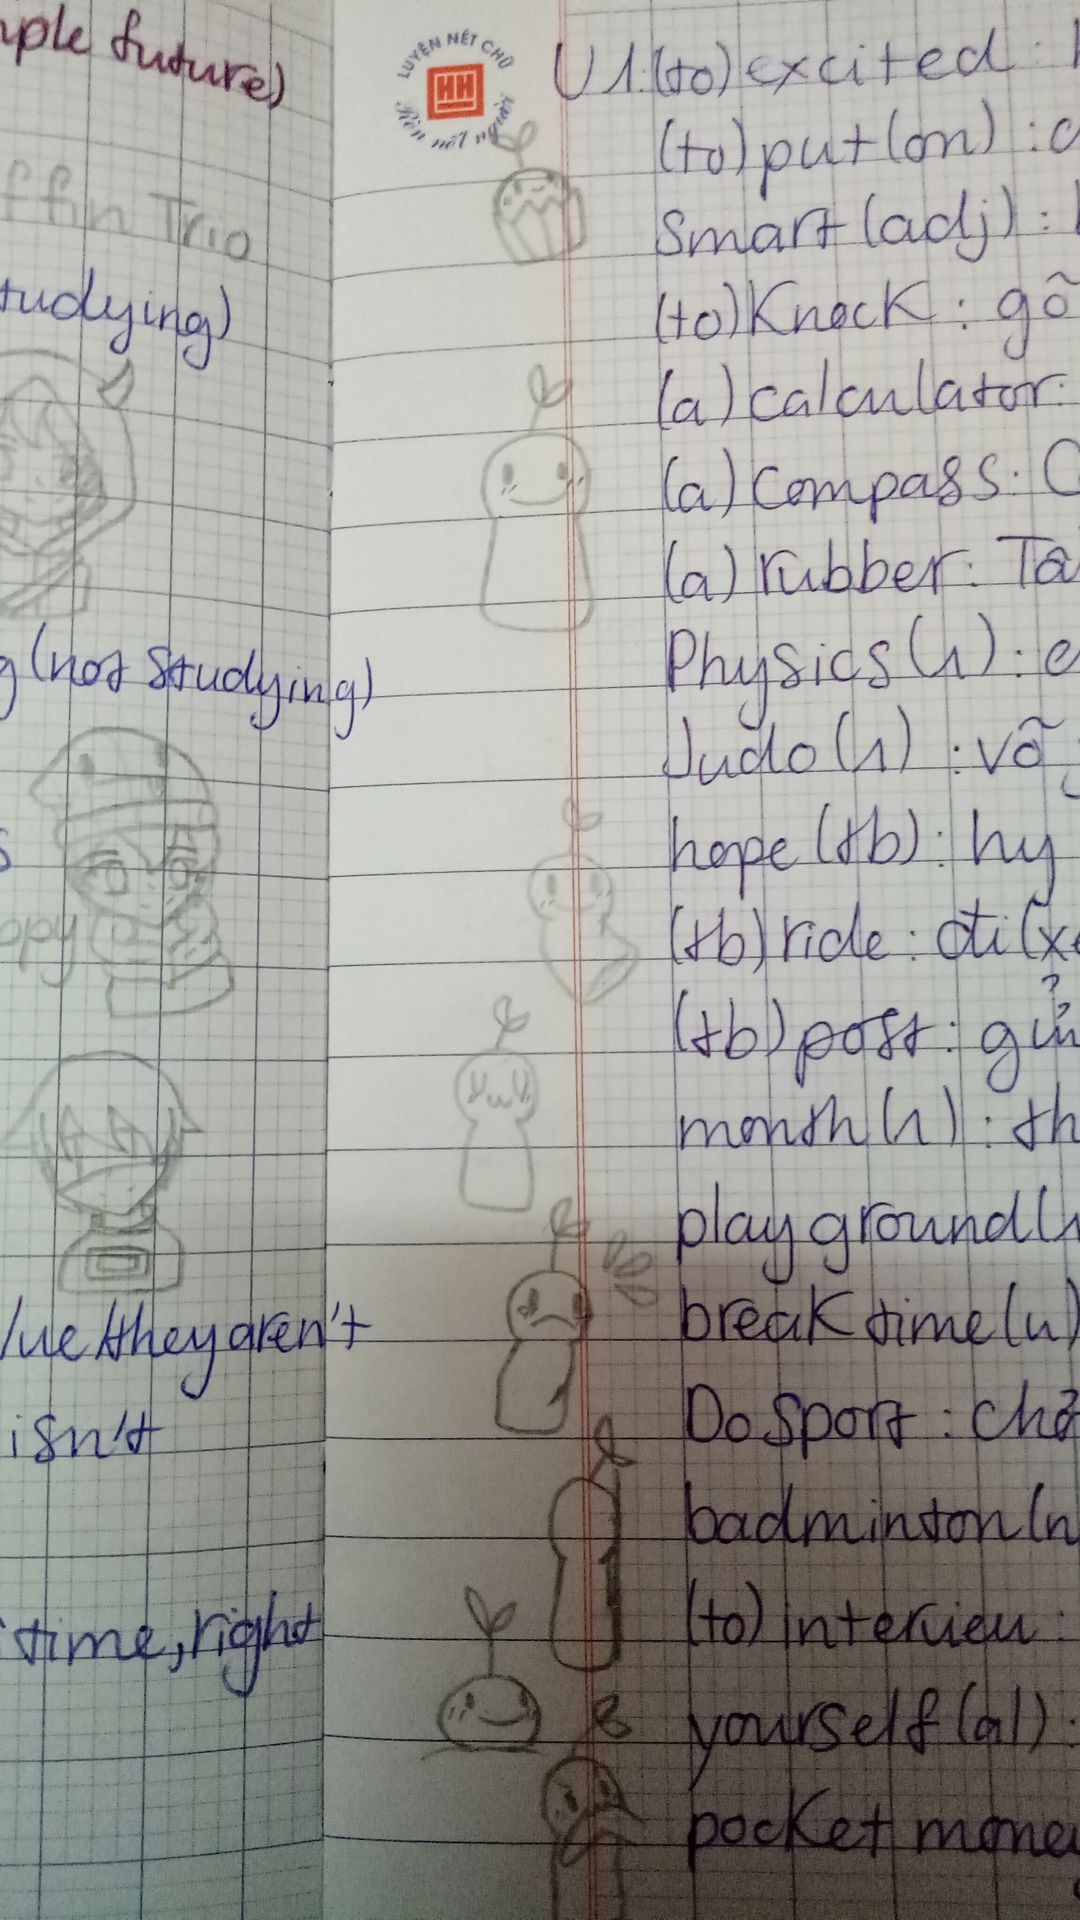 mple future)
ffin Trio
tudying)
g (not studying)
s
opy
/we/they aren't
isn't
time, right
LUYỆN NÉT CHỮ
HH
Rèn nết người
U1: (to) excited :
(to) put (on) : đ
Smart (adj) :
(to) Knock : gõ
(a) calculator:
(a) compass: C
(a) rubber: Tẩ
Physics (n) :
Judo (n) : võ
hope (tb) : hy
(tb) ride : đi (x
(tb) post : gửi
month (n) : th
play ground (n
break time (n)
Do sport : chơ
badminton (n
(to) intervieu :
yourself (al) :
pocket money